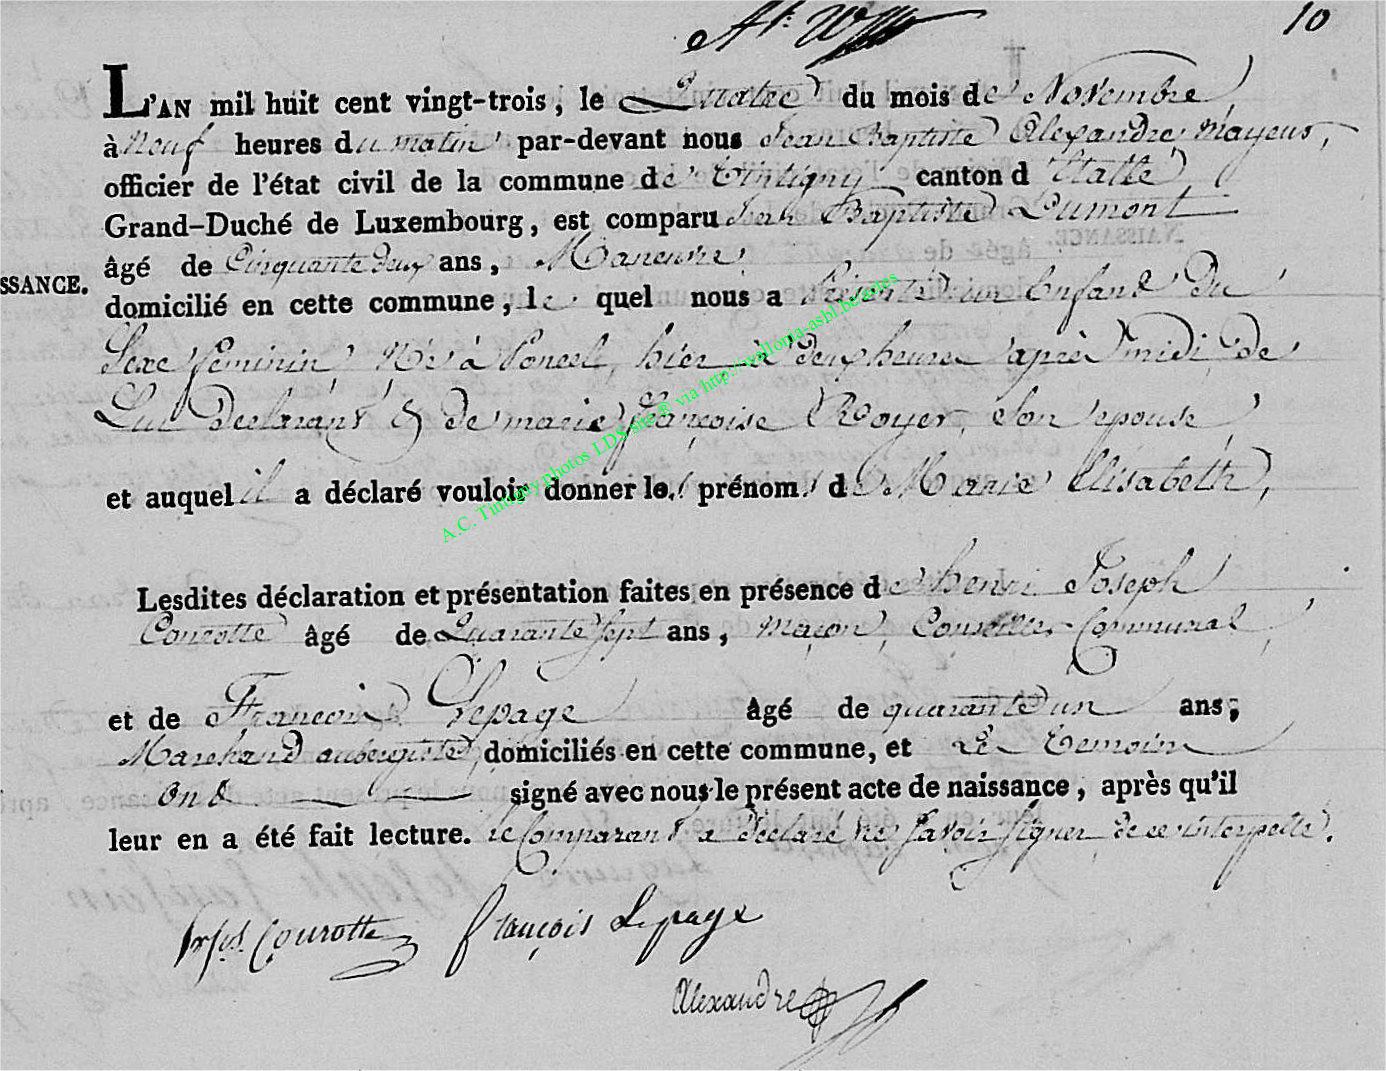 10
L'AN mil huit cent vingt-trois, le Quatre du mois de Novembre,
à Neuf heures du matin par-devant nous Jean Baptiste Alexandre, Mayeur,
officier de l'état civil de la commune de Tintigny canton d'Etalle
Grand-Duché de Luxembourg, est comparu Jean Baptiste Dumont
âgé de Cinquante deux ans, Maneuvre
SSANCE.
domicilié en cette commune, le quel nous a Présenté un Enfant Du
Sexe féminin Né à Poncel, hier à deux heures après midi de
Lui Déclarant & de marie françoise Royer, Son épouse,
et auquel il a déclaré vouloir donner les prénoms de Marie Elisabeth,
A.C. Tintigny photos LDS site R via http://wallonia-asbl.be/actes
Lesdites déclaration et présentation faites en présence de henri Joseph
Courotte âgé de Quarante Sept ans, Maçon, Conseiller Communal,
et de François Lepage âgé de quarante un ans,
Marchand aubergiste, domiciliés en cette commune, et Les Temoins
ont signé avec nous le présent acte de naissance, après qu'il
leur en a été fait lecture. le Comparant a Déclaré ne Savoir Signer de ce interpellé.
Courotte
françois Lepage
Alexandre